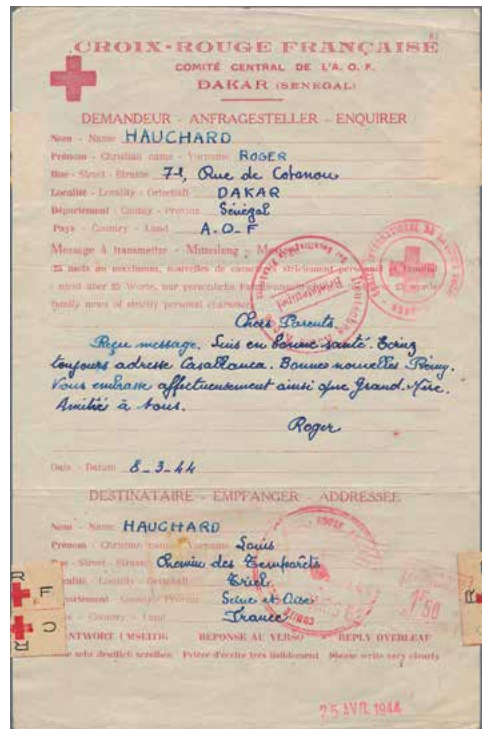 CROIX-ROUGE FRANÇAISE
COMITÉ CENTRAL DE L'A. O. F.
DAKAR (SENEGAL)
DEMANDEUR - ANFRAGESTELLER - ENQUIRER
Nom - Name HAUCHARD
Prénom - Christian name - Vorname ROGER
Rue - Street - Strasse 71, Rue de Cotonou
Localité - Locality - Ortschaft DAKAR
Département - County - Provinz Sénégal
Pays - Country - Land A.O.F
Message à transmettre - Mitteilung -
(25 mots au maximum, nouvelles de caractère strictement personnel et familial
nicht über 25 Worte, nur persönliche 25 words
family news of strictly personal character)
Chers Parents.
Reçu message. Suis en bonne santé. Ecrivez
toujours adresse Casablanca. Bonnes nouvelles Rémy.
Vous embrasse affectueusement ainsi que Grand-Mère.
Amitiés à tous.
Roger
Date - Datum 8-3-44
DESTINATAIRE - EMPFANGER - ADDRESSEE
Nom - Name HAUCHARD
Prénom - Christian name - Vorname Louis
Rue - Street - Strasse Chemin des
Localité - Locality - Ortschaft Triel
Département - County - Provinz Seine et Oise
- Country - Land France
ANTWORT UMSEITIG REPONSE AU VERSO REPLY OVERLEAF
sehr deutlich schreiben Prière d'écrire très lisiblement Please write very clearly
25 AVR. 1944